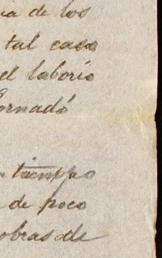 na de los
tal caso
el laborio
tornadó
tiempo
de poco
obras de